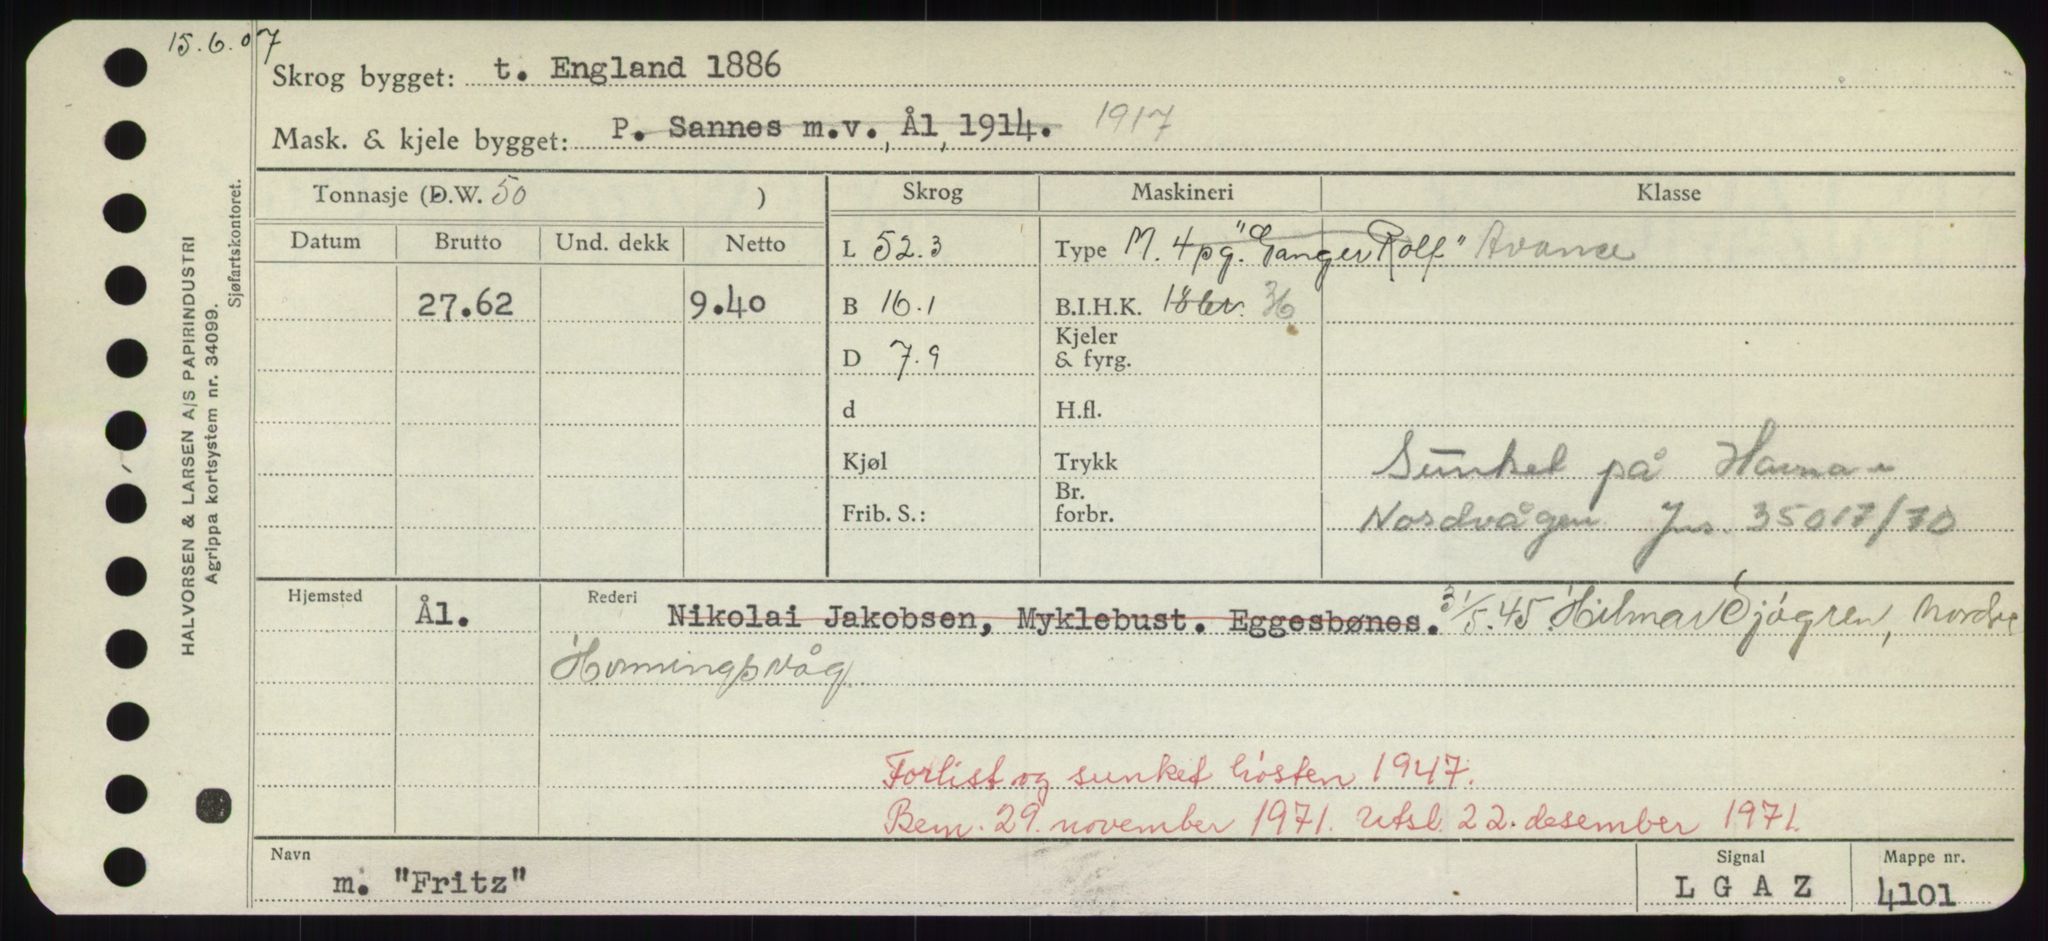 15.6.07
Skrog bygget: t. England 1886
Mask. & kjele bygget: P. Sannes m.v., Ål, 1914. 1917
Tonnasje (D.W. 50 ) Skrog Maskineri Klasse
Datum Brutto Und. dekk Netto
L 52.3 Type M. 4pg. "Ganger Rolf" Avance
27.62 9.40 B 16.1 B.I.H.K. 18 br. 36
D 7.9 Kjeler & fyrg.
d H.fl.
Kjøl Trykk Sunket på Havna
Frib. S.: Br. forbr. Nordvågen Jns. 35017/70
Hjemsted Ål. Rederi Nikolai Jakobsen, Myklebust. Eggesbønes. 31/5.45. Hilmar Sjøgren, Nordre
Honningsvåg
Forlist og sunket høsten 1947.
Bem. 29. november 1971. Utsl. 22. desember 1971.
Navn m. "Fritz" Signal L G A Z Mappe nr. 4101
HALVORSEN & LARSEN A/S PAPIRINDUSTRI
Agrippa kortsystem nr. 34099.
Sjøfartskontoret.